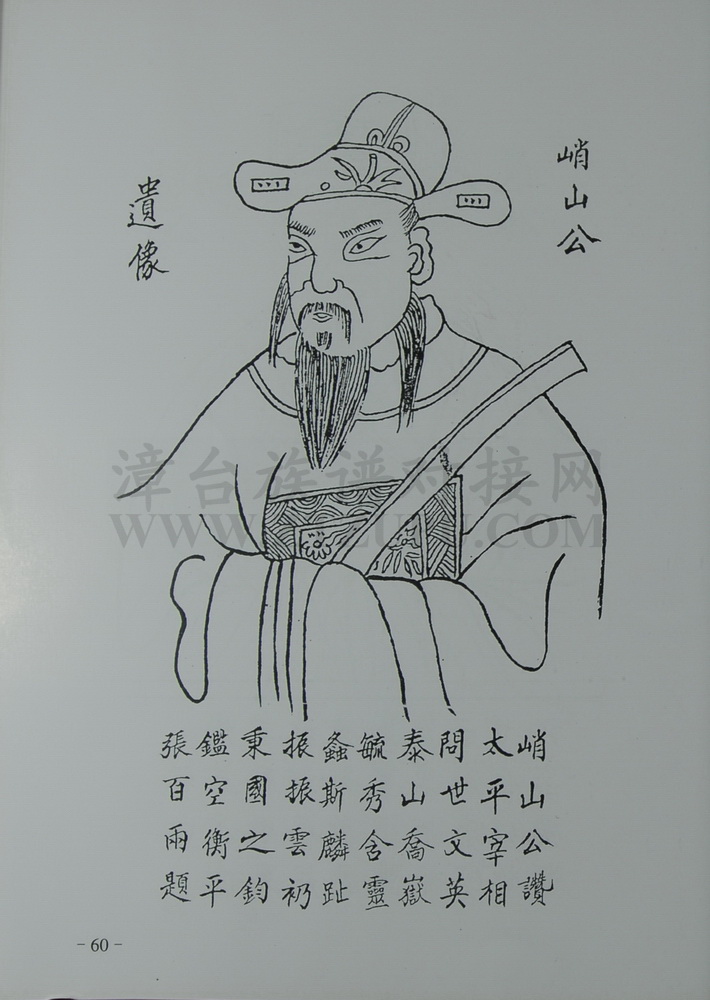 峭山公
遺像
漳台族谱对接网
峭山公讚
太平宰相
問世文英
泰山喬嶽
毓秀含靈
螽斯麟趾
振振雲礽
秉國之鈞
鑑空衡平
張百兩題
- 60 -